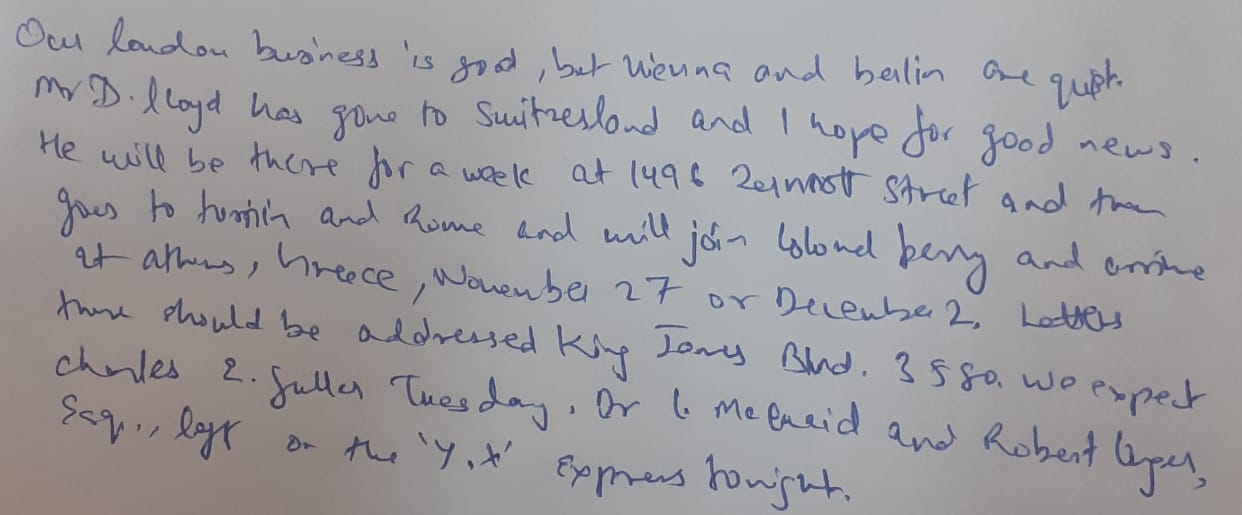 Our london business is good, but Vienna and berlin are quiet.
Mr D. lloyd has gone to Switzerland and I hope for good news.
He will be there for a week at 1496 Zermott Street and then
goes to turin and Rome and will join Colonel perry and arrive
at athens, Greece, November 27 or December 2. Letters
there should be addressed King James Blvd. 3580. We expect
charles E. fuller Tuesday. Dr L. McQuaid and Robert Unger,
Esq., left on the 'Y.X' Express tonight.